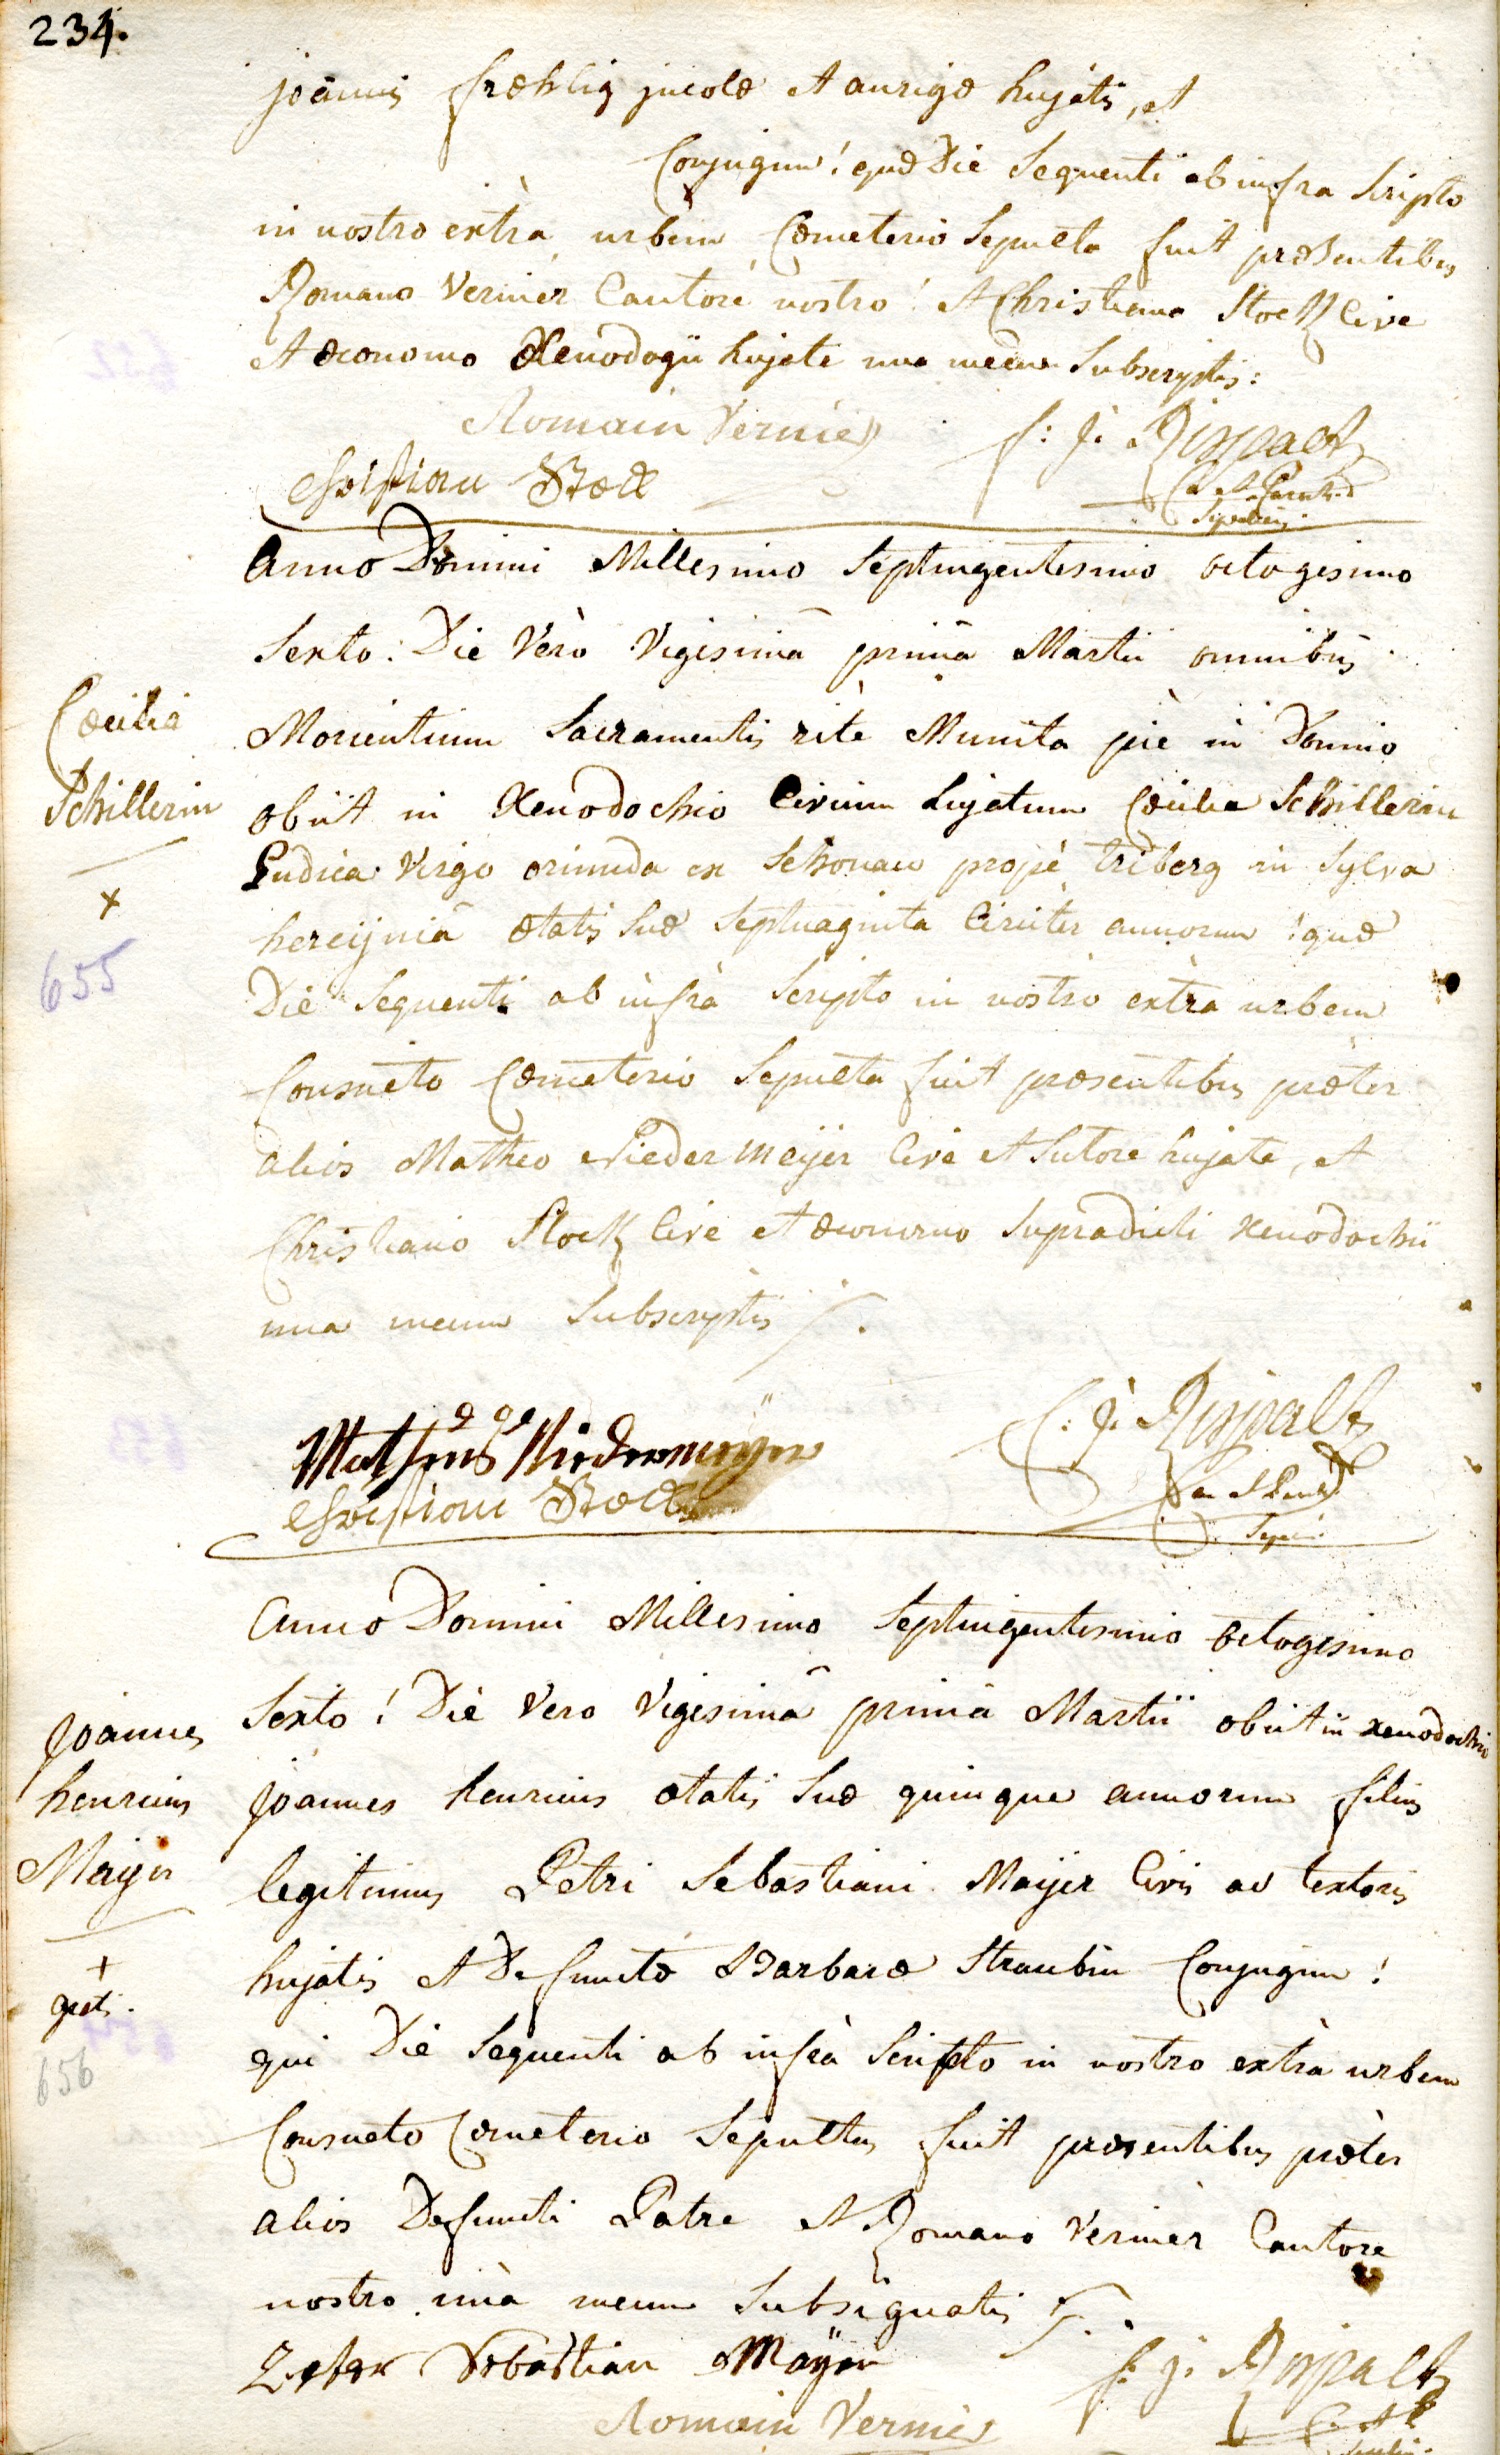 234.
joannis frœhlig jncolæ et aurigæ hujatis, et
Conjugum! quæ Die Sequenti ab infra Scripto
in nostro extrà urbem Cœmeterio Sepulta fuit præsentibus
Romano Vernier Cantore nostro! et Christiano Stoeck Cive
et œconomo Xenodogii hujate una mecum Subscriptis:
Romain Vernier
f: j: Rispalt
Christian Stoeck
Anno Domini Millesimo Septingentesimo octogesimo
Sexto: Die Verò Vigesimâ primâ Martii omnibus
Morientium Sacramentis ritè Munita piè in Domino
obiit in Xenodochio Civium hujatum Cœcilia Schillerin
Pudica Virgo oriunda ex Schonau propè triberg in Sylva
hercijniâ œtatis Suæ Septuaginta Circiter annorum! quæ
Die Sequenti ab infrà Scripto in nostro extra urbem
Consueto Cœmeterio Sepulta fuit præsentibus præter
alios Matheo Niedermeijer Cive et Sutore hujate, et
Christiano Stoeck Cive et œconomo Supradicti Xenodochii
una mecum Subscriptis
Cœcilia
Schillerin
+
655
Mattheus Niedermeyer
f: j: Rispalt
Christian Stoeck
Anno Domini Millesimo Septingentesimo octogesimo
Sexto! Die Vero Vigesimâ primâ Martii obiit in xenodochio
joannes henricus œtatis Suæ quinque annorum filius
legitimus Petri Sebastiani Maijer Civis ac textoris
hujatis et Defunctæ Barbaræ Straubin Conjugum!
qui Die Sequenti ab infrà Scripto in nostro extra urbem
Consueto Cœmeterio Sepultus fuit præsentibus præter
alios Defuncti Patre et Romano Vernier Cantore
nostro unà mecum Subsignatis
joannes
henricus
Maijer
+
grat.
656
Peter Sebastian Mayer
f: j: Rispalt
Romain Vernier